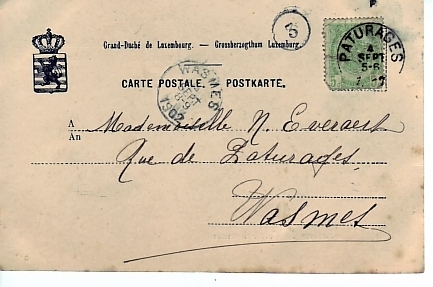 Grand-Duché de Luxembourg. — Grossherzogthum Luxemburg.
CARTE POSTALE. POSTKARTE.
PATURAGES
4
SEPT
5-6
WASMES
1902
A Mademoiselle N. Everaert
An
Rue de Paturages,
Wasmes